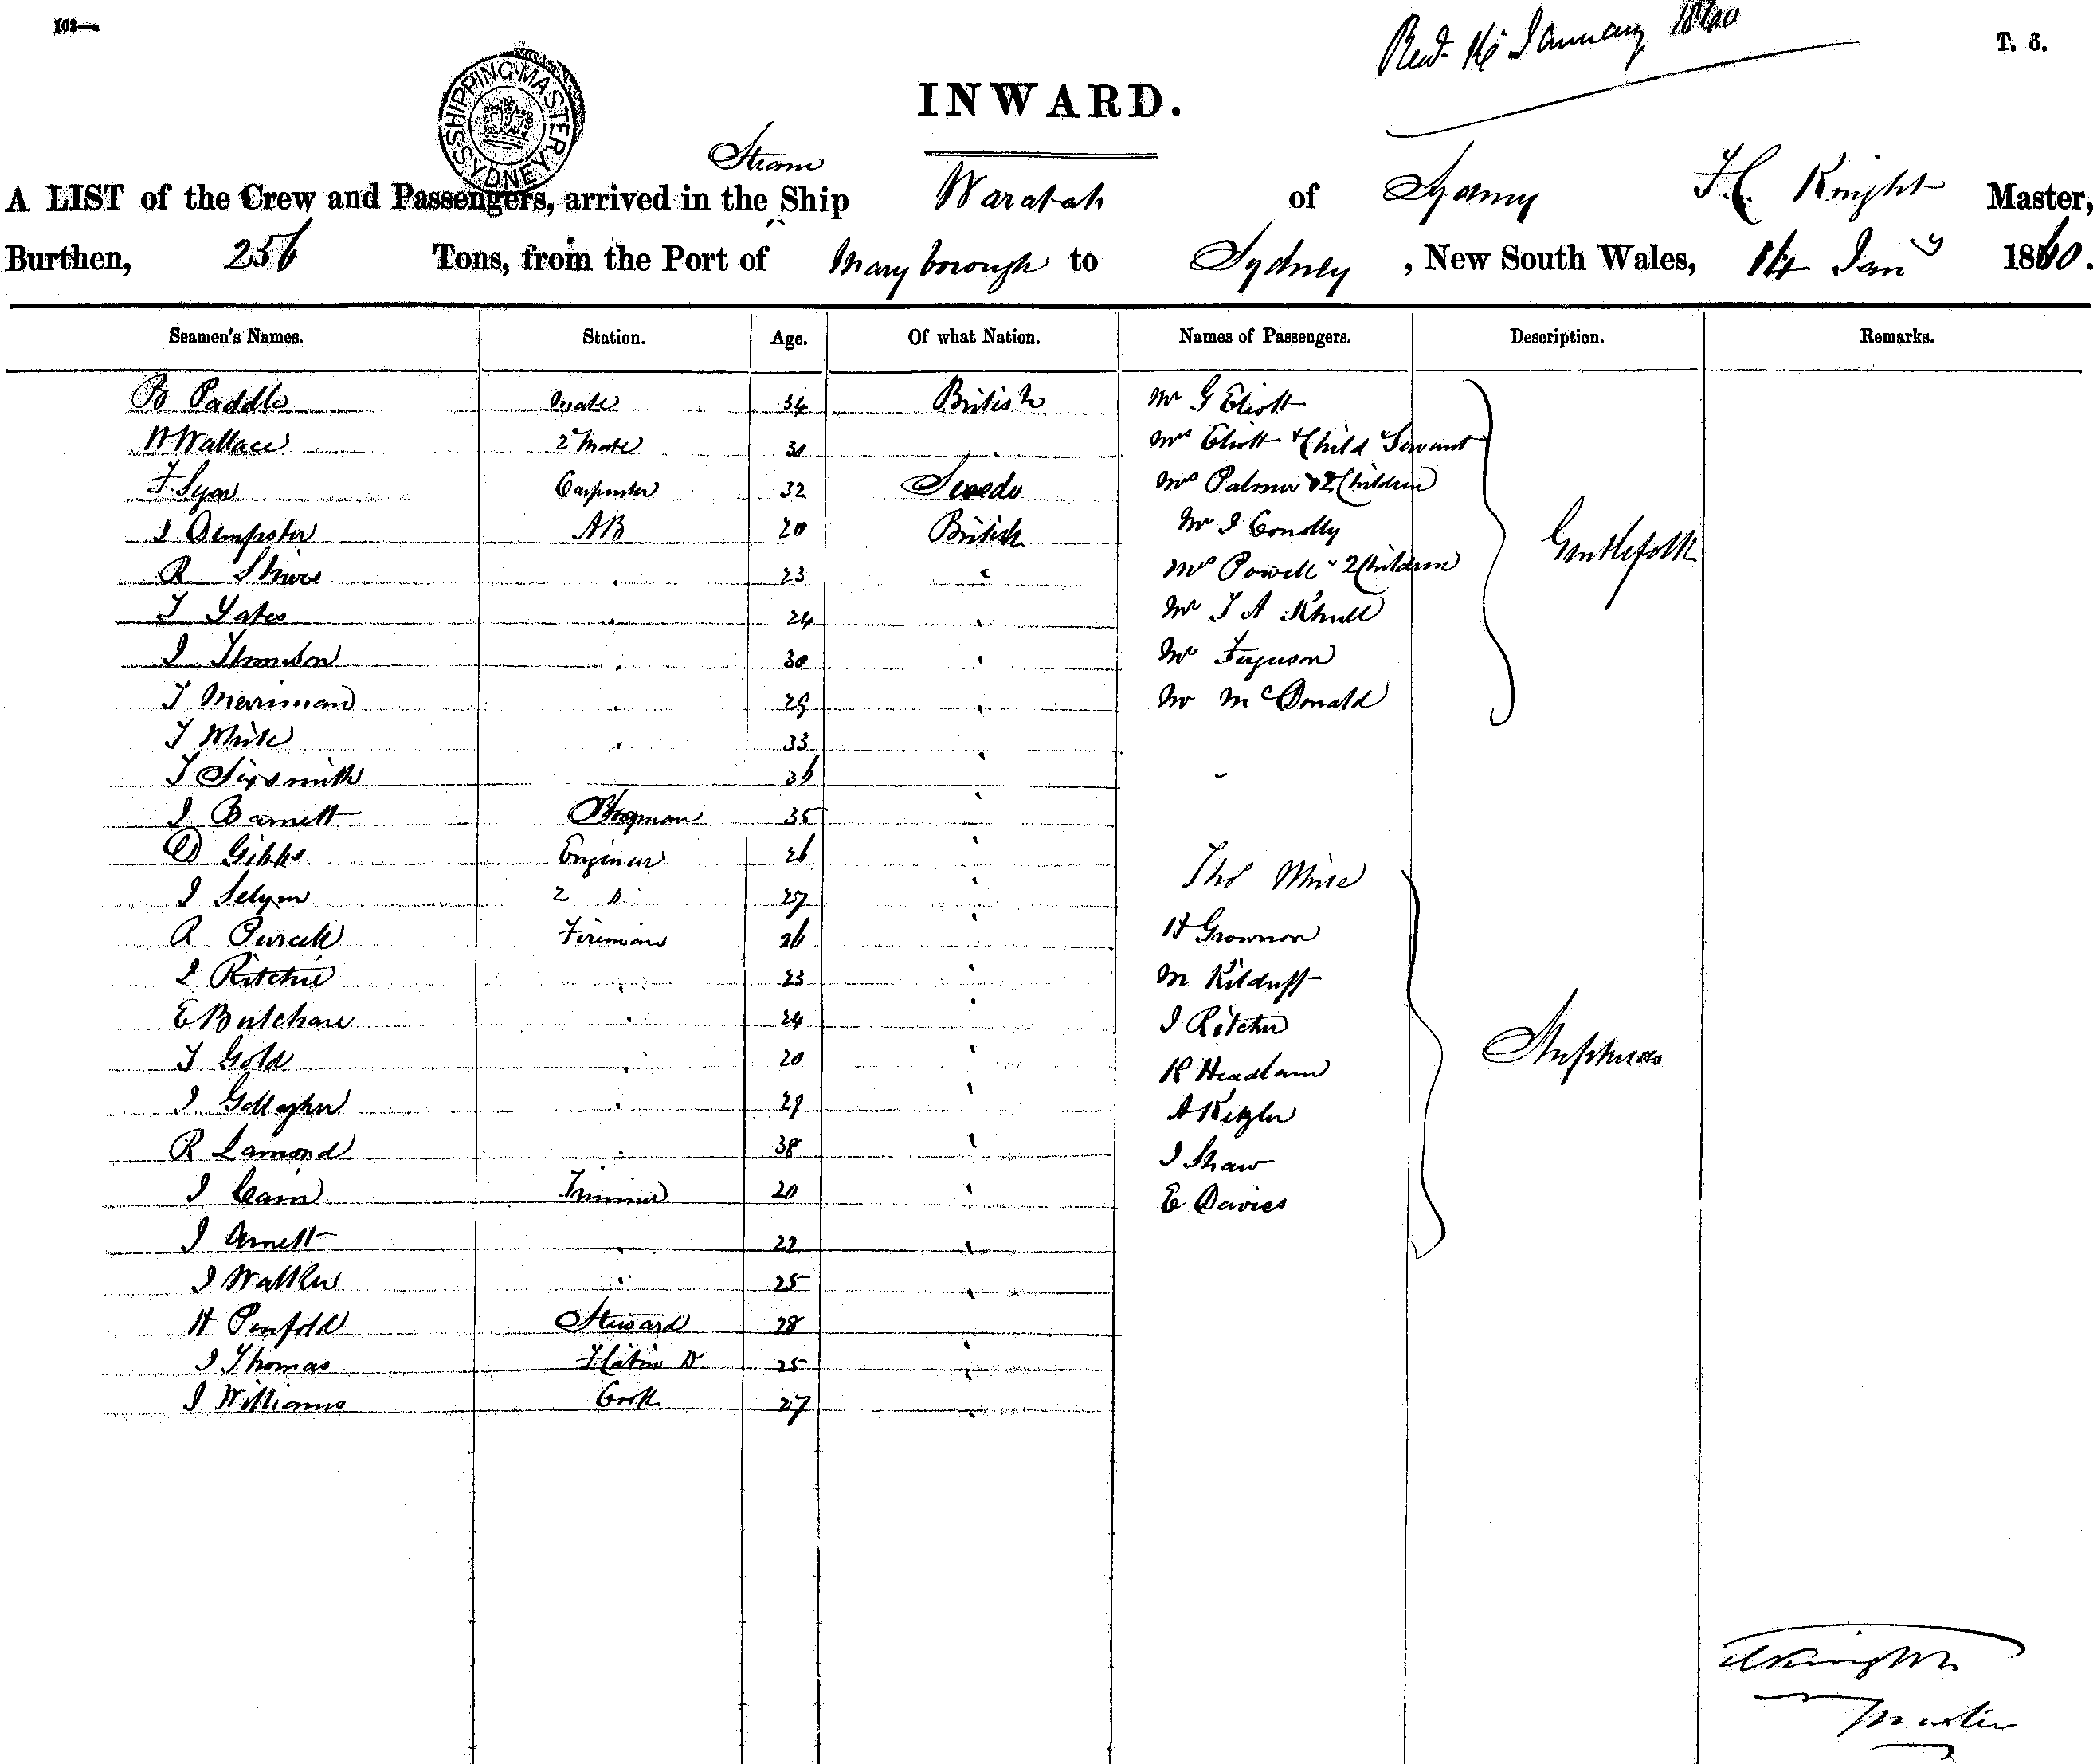 102—
Recd. 16 January 1860
T. 6.
SHIPPING MASTER SYDNEY
INWARD.
Steam
A LIST of the Crew and Passengers, arrived in the Ship Waratah of Sydney Knight Master,
Burthen, 256 Tons, from the Port of Maryborough to Sydney, New South Wales, 14 Jany 1860.
Seamen's Names. Station. Age. Of what Nation. Names of Passengers. Description. Remarks.
B Paddle Mate 34 British Mr G Eliott
W Wallace 2d Mate 30 Mrs Eliott & Child & Servant
F. Lyon Carpenter 32 Swede Mrs Palmer & 2 Children
J Dempster AB 20 British Mr J Conolly
R 23 Mrs Powell & 2 Children
Gentlefolk
T Yates 24 Mr T A
J 30 Mr Ferguson
T Merriman 29 Mr McDonald
T White 33
T Sixsmith 36
J Barnett 35
D Gibbs Engineer 26
J Selym 2 Do 27 Thos
R Purcell Fireman 26 H
J Ritchie 23 M Kilduff
E Butchard 24 J
T Gold 20 R Headlam
J Gollagher 29 A
R Lamond 38 J Shaw
J Cain Trimmer 20 E Davies
J Arnett 22
J Walker 25
H Penfold Steward 28
J Thomas 25
J Williams Cook 27
Knight
Master